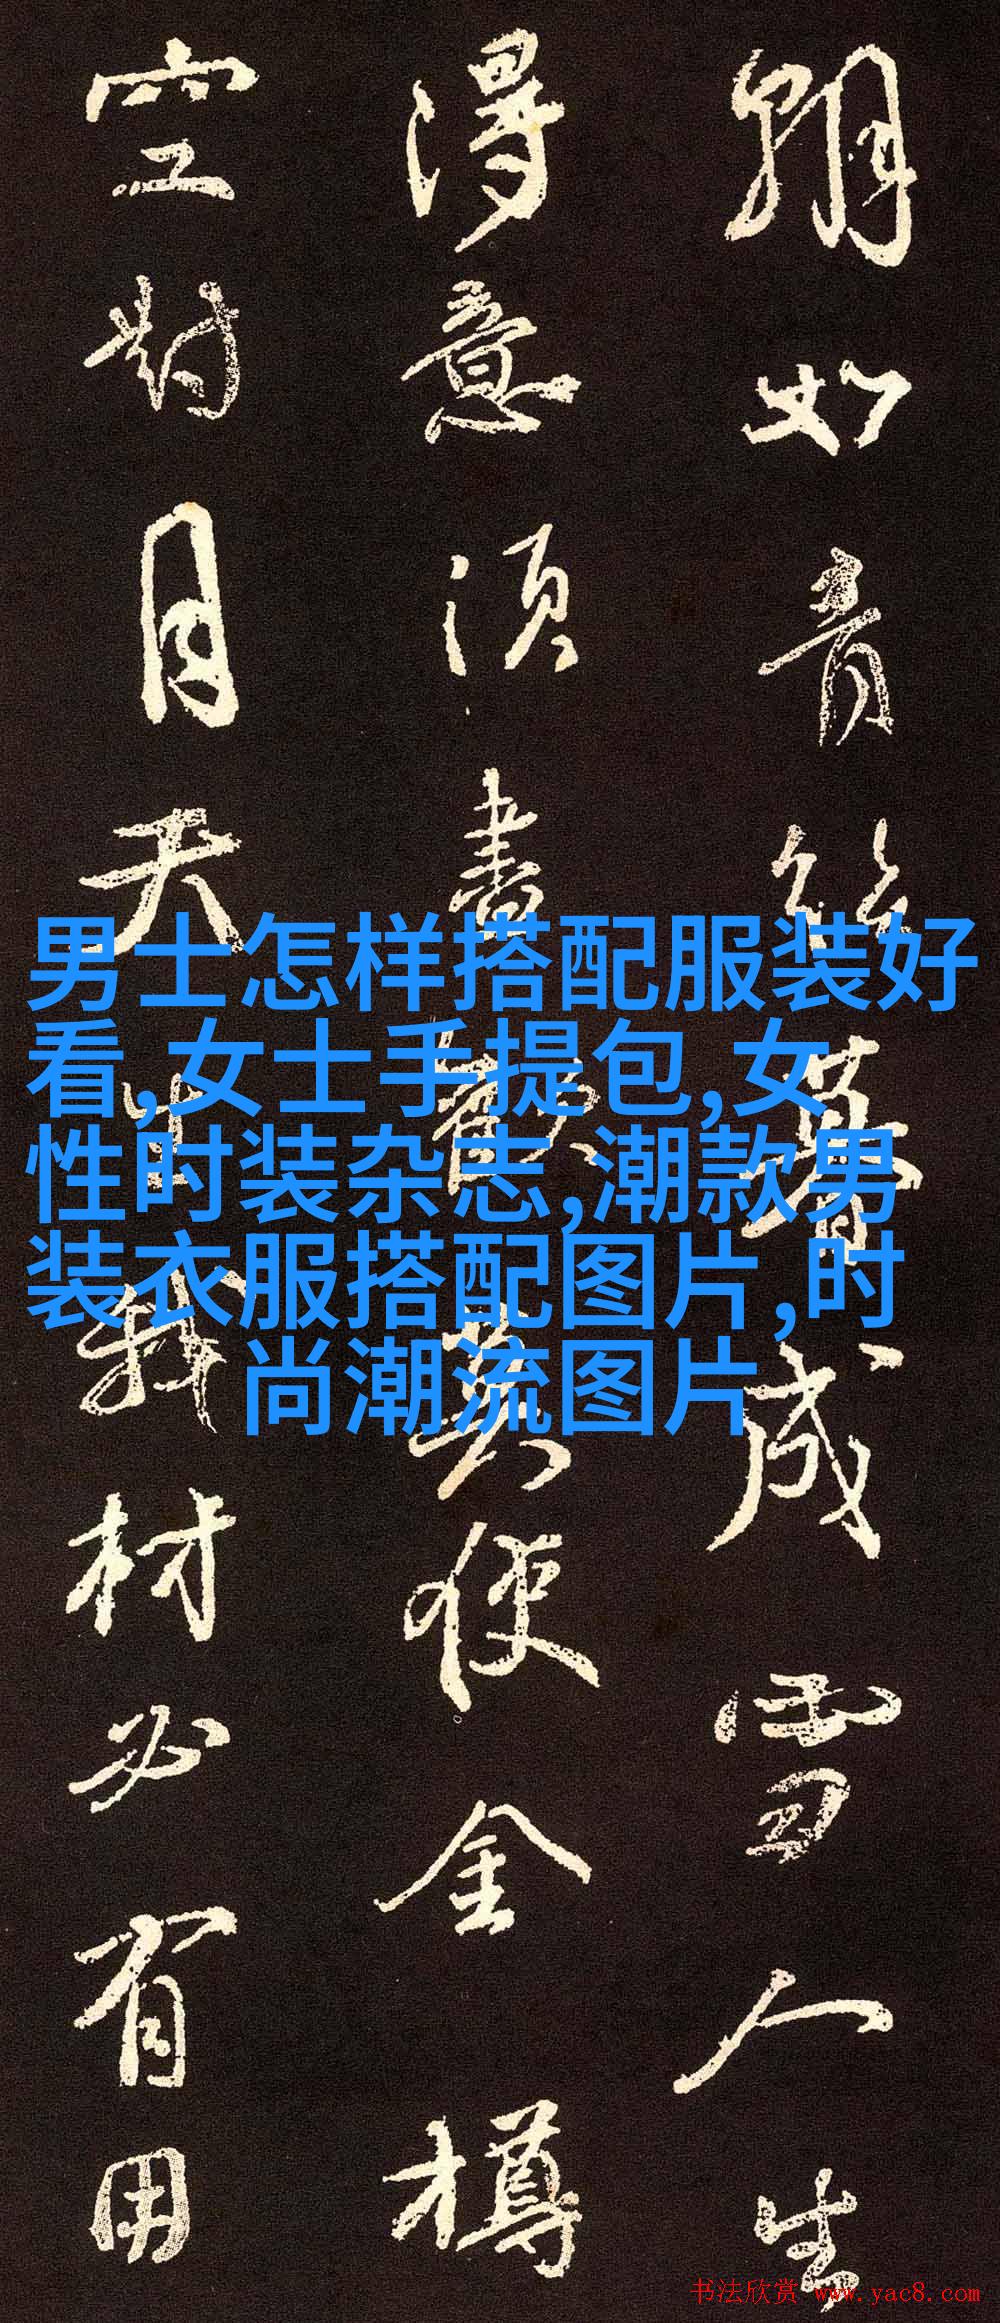 朝如青絲暮成雪人生
得意須盡歡莫使金樽
空對月天生我材必有用
男士怎样搭配服装好
看,女士手提包,女
性时装杂志,潮款男
装衣服搭配图片,时
尚潮流图片
书法欣赏 www.yac8.com